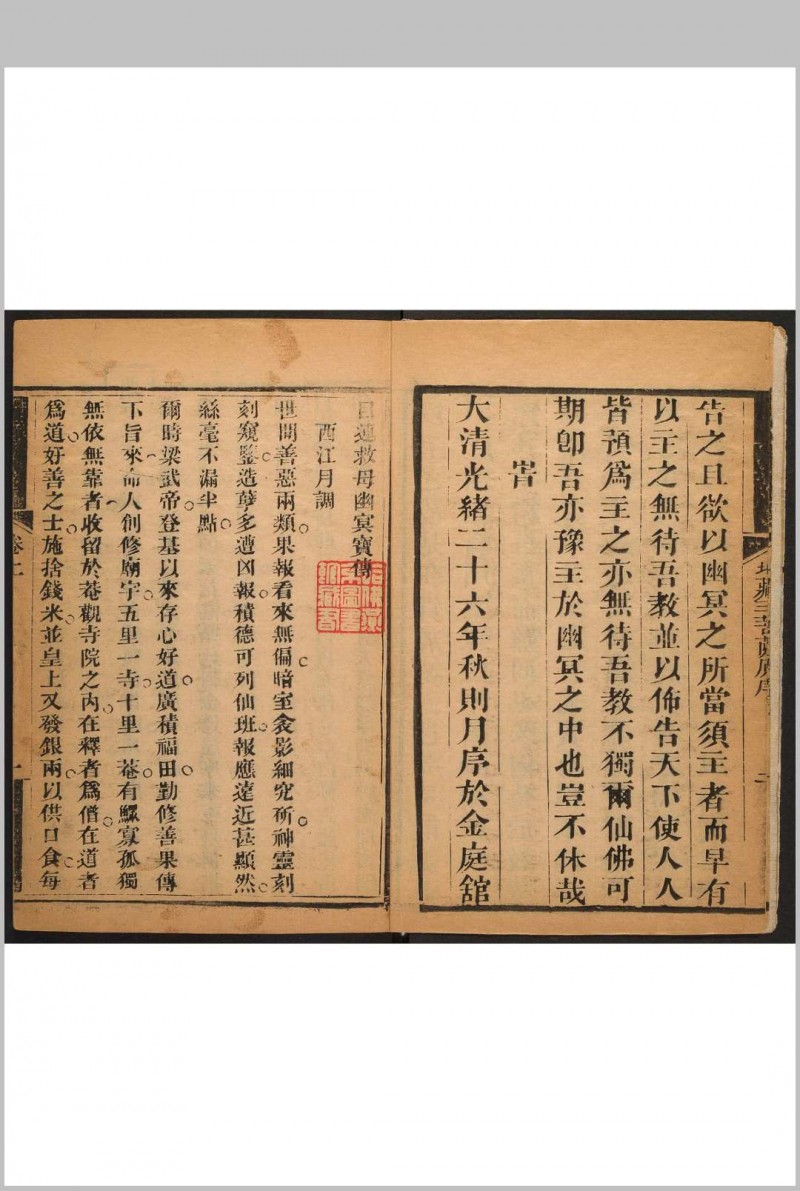 告之且欲以幽冥之所當須主者而早有
以主之無待吾教並以佈告天下使人人
皆預爲主之亦無待吾教不獨爾仙佛可
期卽吾亦豫主於幽冥之中也豈不休哉
旹
大清光緒二十六年秋則月序於金庭舘
目連救母幽冥寶傳
西江月調
世間善惡兩類果報看來無偏暗室衾影細究硏神靈刻
刻窺鑒造孽多遭凶報積德可列仙班報應遠近甚顯然
絲毫不漏半點
爾時梁武帝登基以來存心好道廣積福田勤修善果傳
下旨來命人創修廟宇五里一寺十里一菴有鰥寡孤獨
無依無靠者收留於菴觀寺院之內在釋者爲僧在道者
爲道好善之士施捨錢米並皇上又發銀兩以供口食每